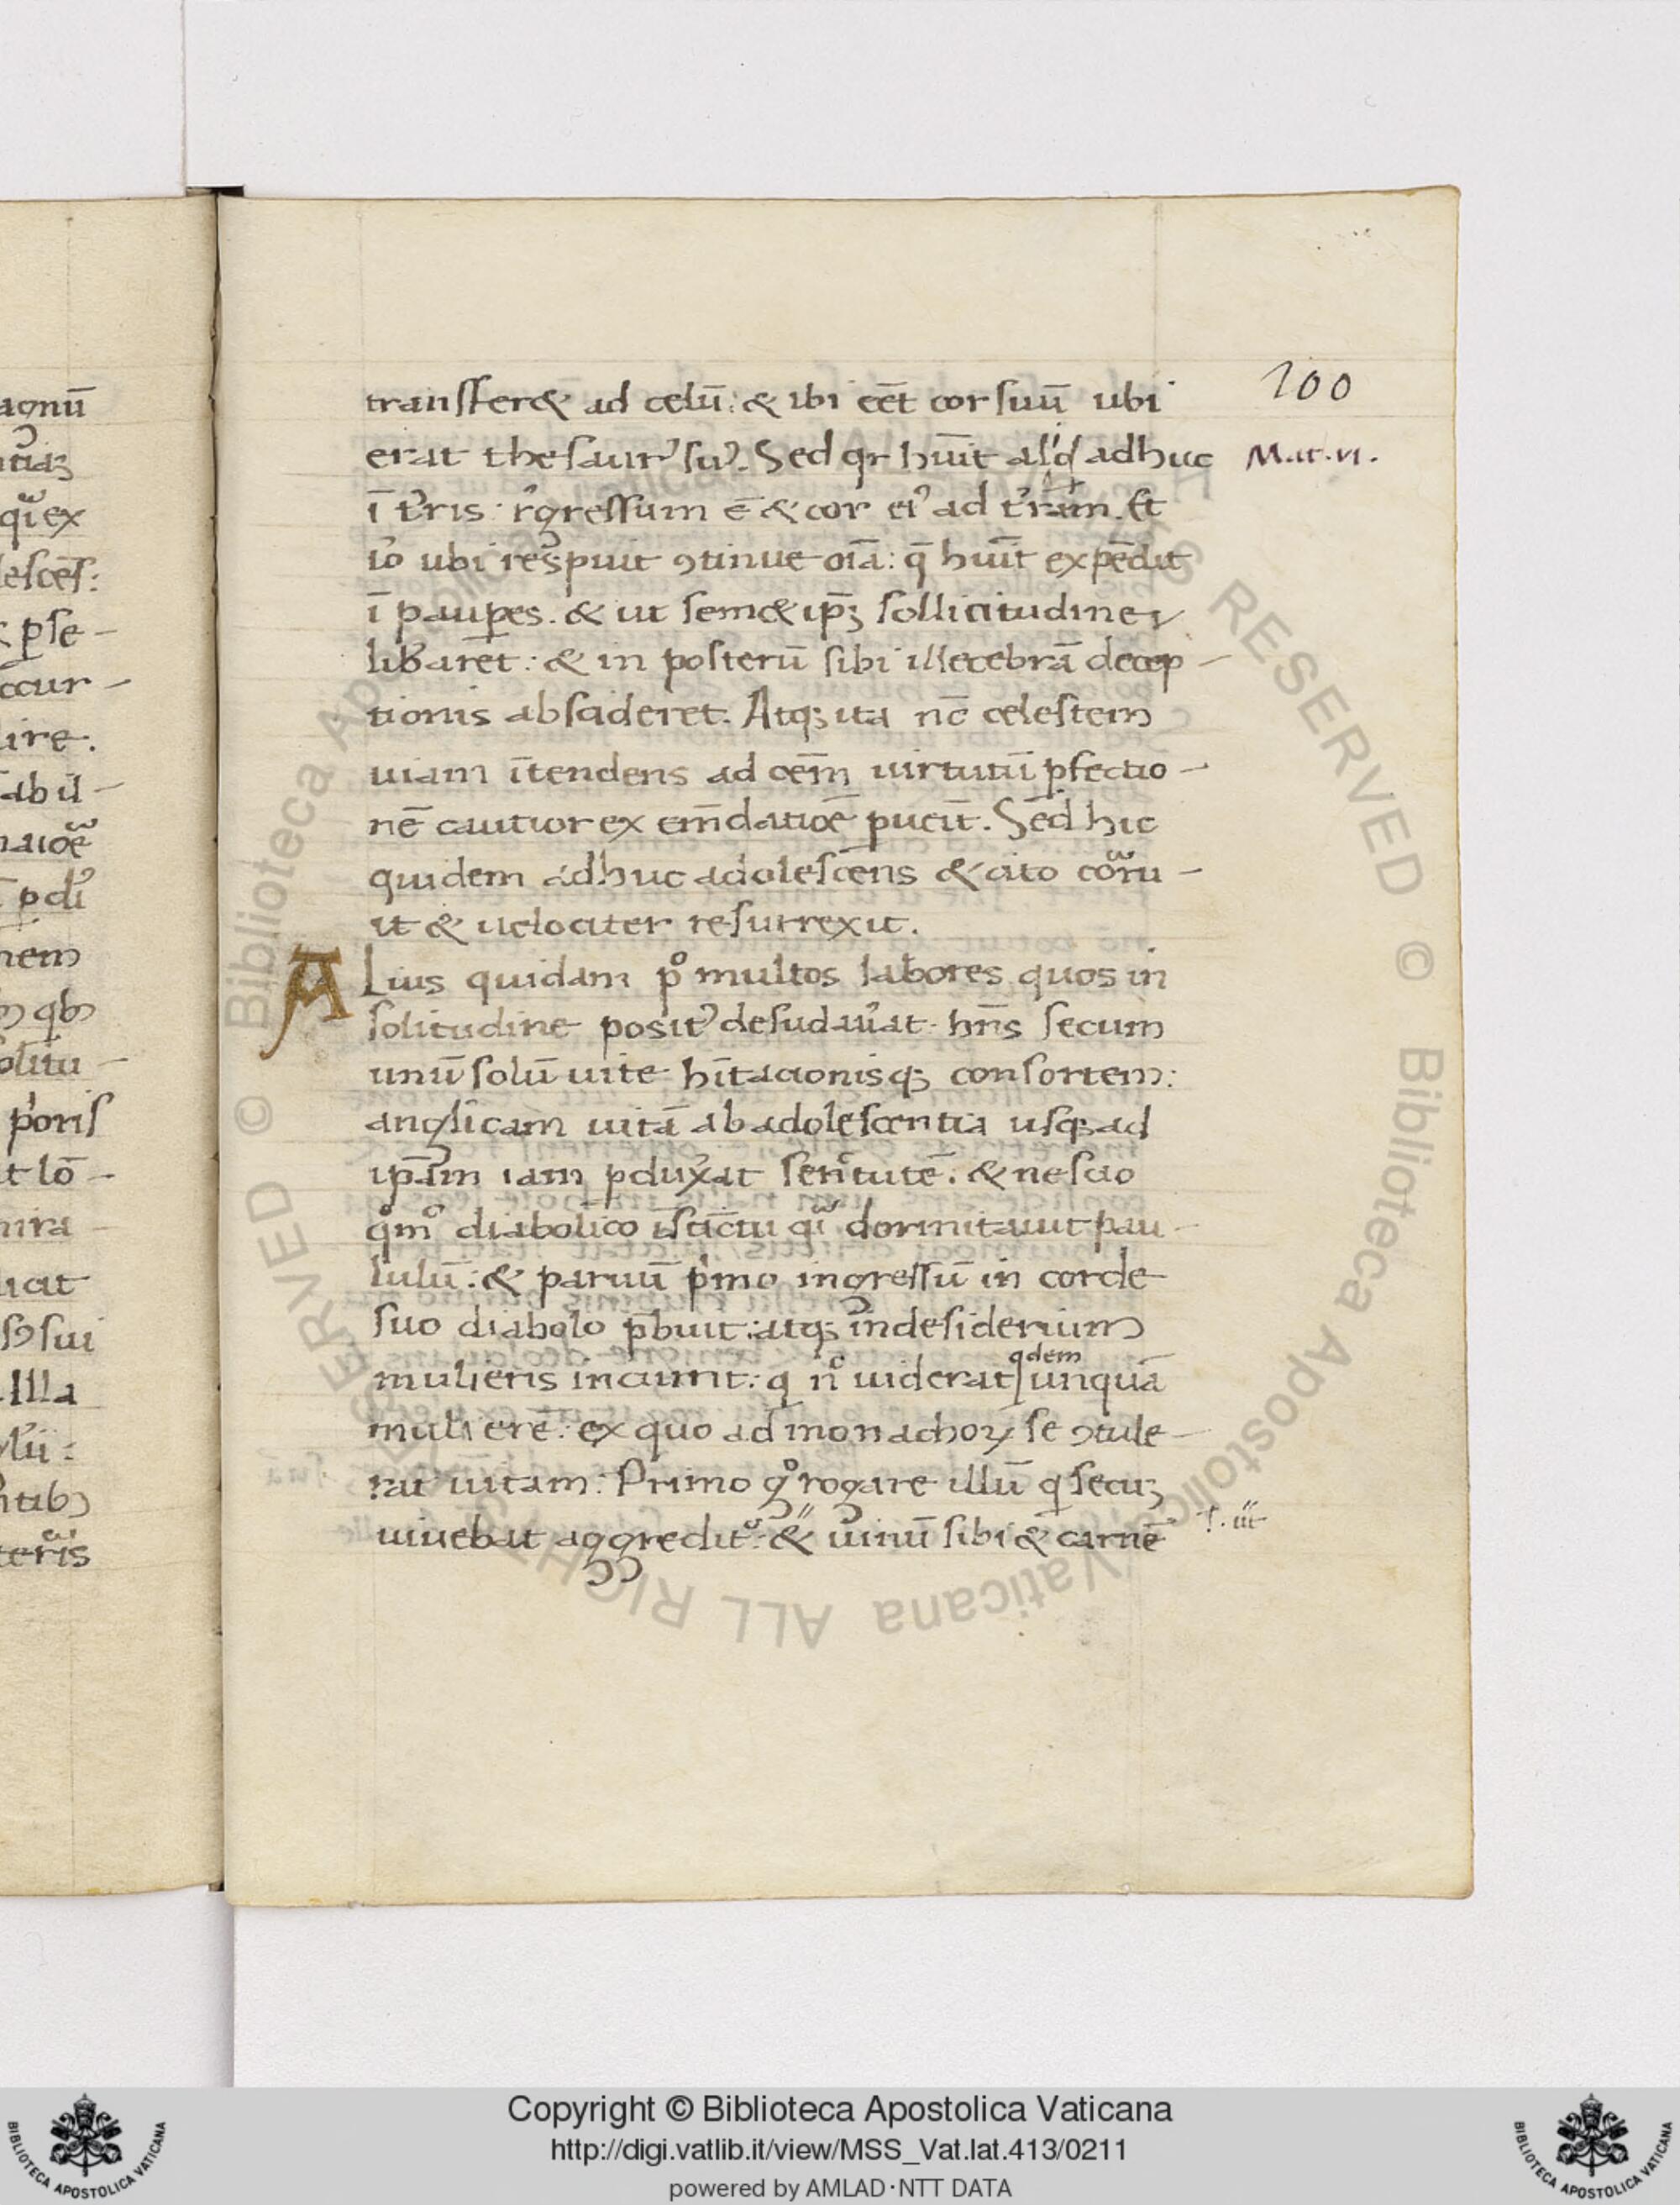 agnū
qiex
lesces:
pse-
ccur-
lire.
abil-
pdi
nem
olitu-
poris
t lō-
mira-
Illa
transfer& ad celū: & ibi eēt cor suū ubi
100
erat thesaur᾽ su᾽. Sed qr huīt al'd adhuc
Mat.vi.
ī tr̄is: r᾽gressum ē & cor ei᾽ ad tr̄am. Et
iō ubi respuit ꝯtinue oīa: q̄ huīt expēdit
ī paup̱es. & ut sem& ip̄ꝫ sollicitudineꝝ
lib̄aret: & in posterū sibi illecebrā decep-
tionis abscideret. Atqꝫ ita nc̄ celestem
uiam ītendens ad cēm uirtutū ꝑfectio-
nē cautior ex em̄datioē ꝑueīt. Sed hic
quidem adhuc adolescens & cito corru-
it & uelociter resurrexit.
ALius quidam p° multos labores quos in
solitudine posit᾽ desudau᾽at. hn̄s secum
unū solū uite hītacionisqꝫ consortem:
anglicam uitā ab adolescentia usqꝫ ad
ip̄am iam ꝑdux᾽at senc̄tutē: & nescio
q°m° diabolico īstictu qi dormitauit pau-
lulū: & paruū p'mo ingressū in corde
suo diabolo p̄buit: atqꝫ in desiderium
qdem
mulieris incurrit: q n° uiderat unquā
mulierē: ex quo ad monachoꝝ se ꝯtule-
rat uitam: Primo g° rogare illū q secuꝫ
uiuebat aggredit᾽: & uinū sibi & carnē
l. ut
Copyright © Biblioteca Apostolica Vaticana
http://digi.vatlib.it/view/MSS_Vat.lat.413/0211
powered by AMLAD·NTT DATA
BIBLIOTECA APOSTOLICA VATICANA
BIBLIOTECA APOSTOLICA VATICANA
© Biblioteca Apostolica Vaticana ALL RIGHTS RESERVED